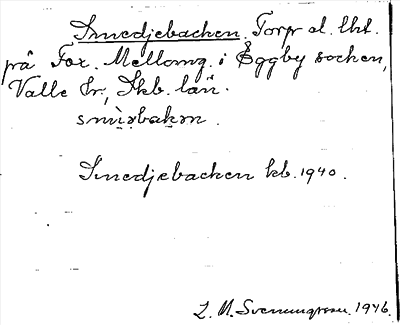 Smedjebacken. Torp el. lht.
på Fox. Mellomg. i Eggby socken,
Valle hr, Skb. län.
smìɤbakɱ.
Smedjebacken kb. 1940.
L. M. Svenungsson. 1946.